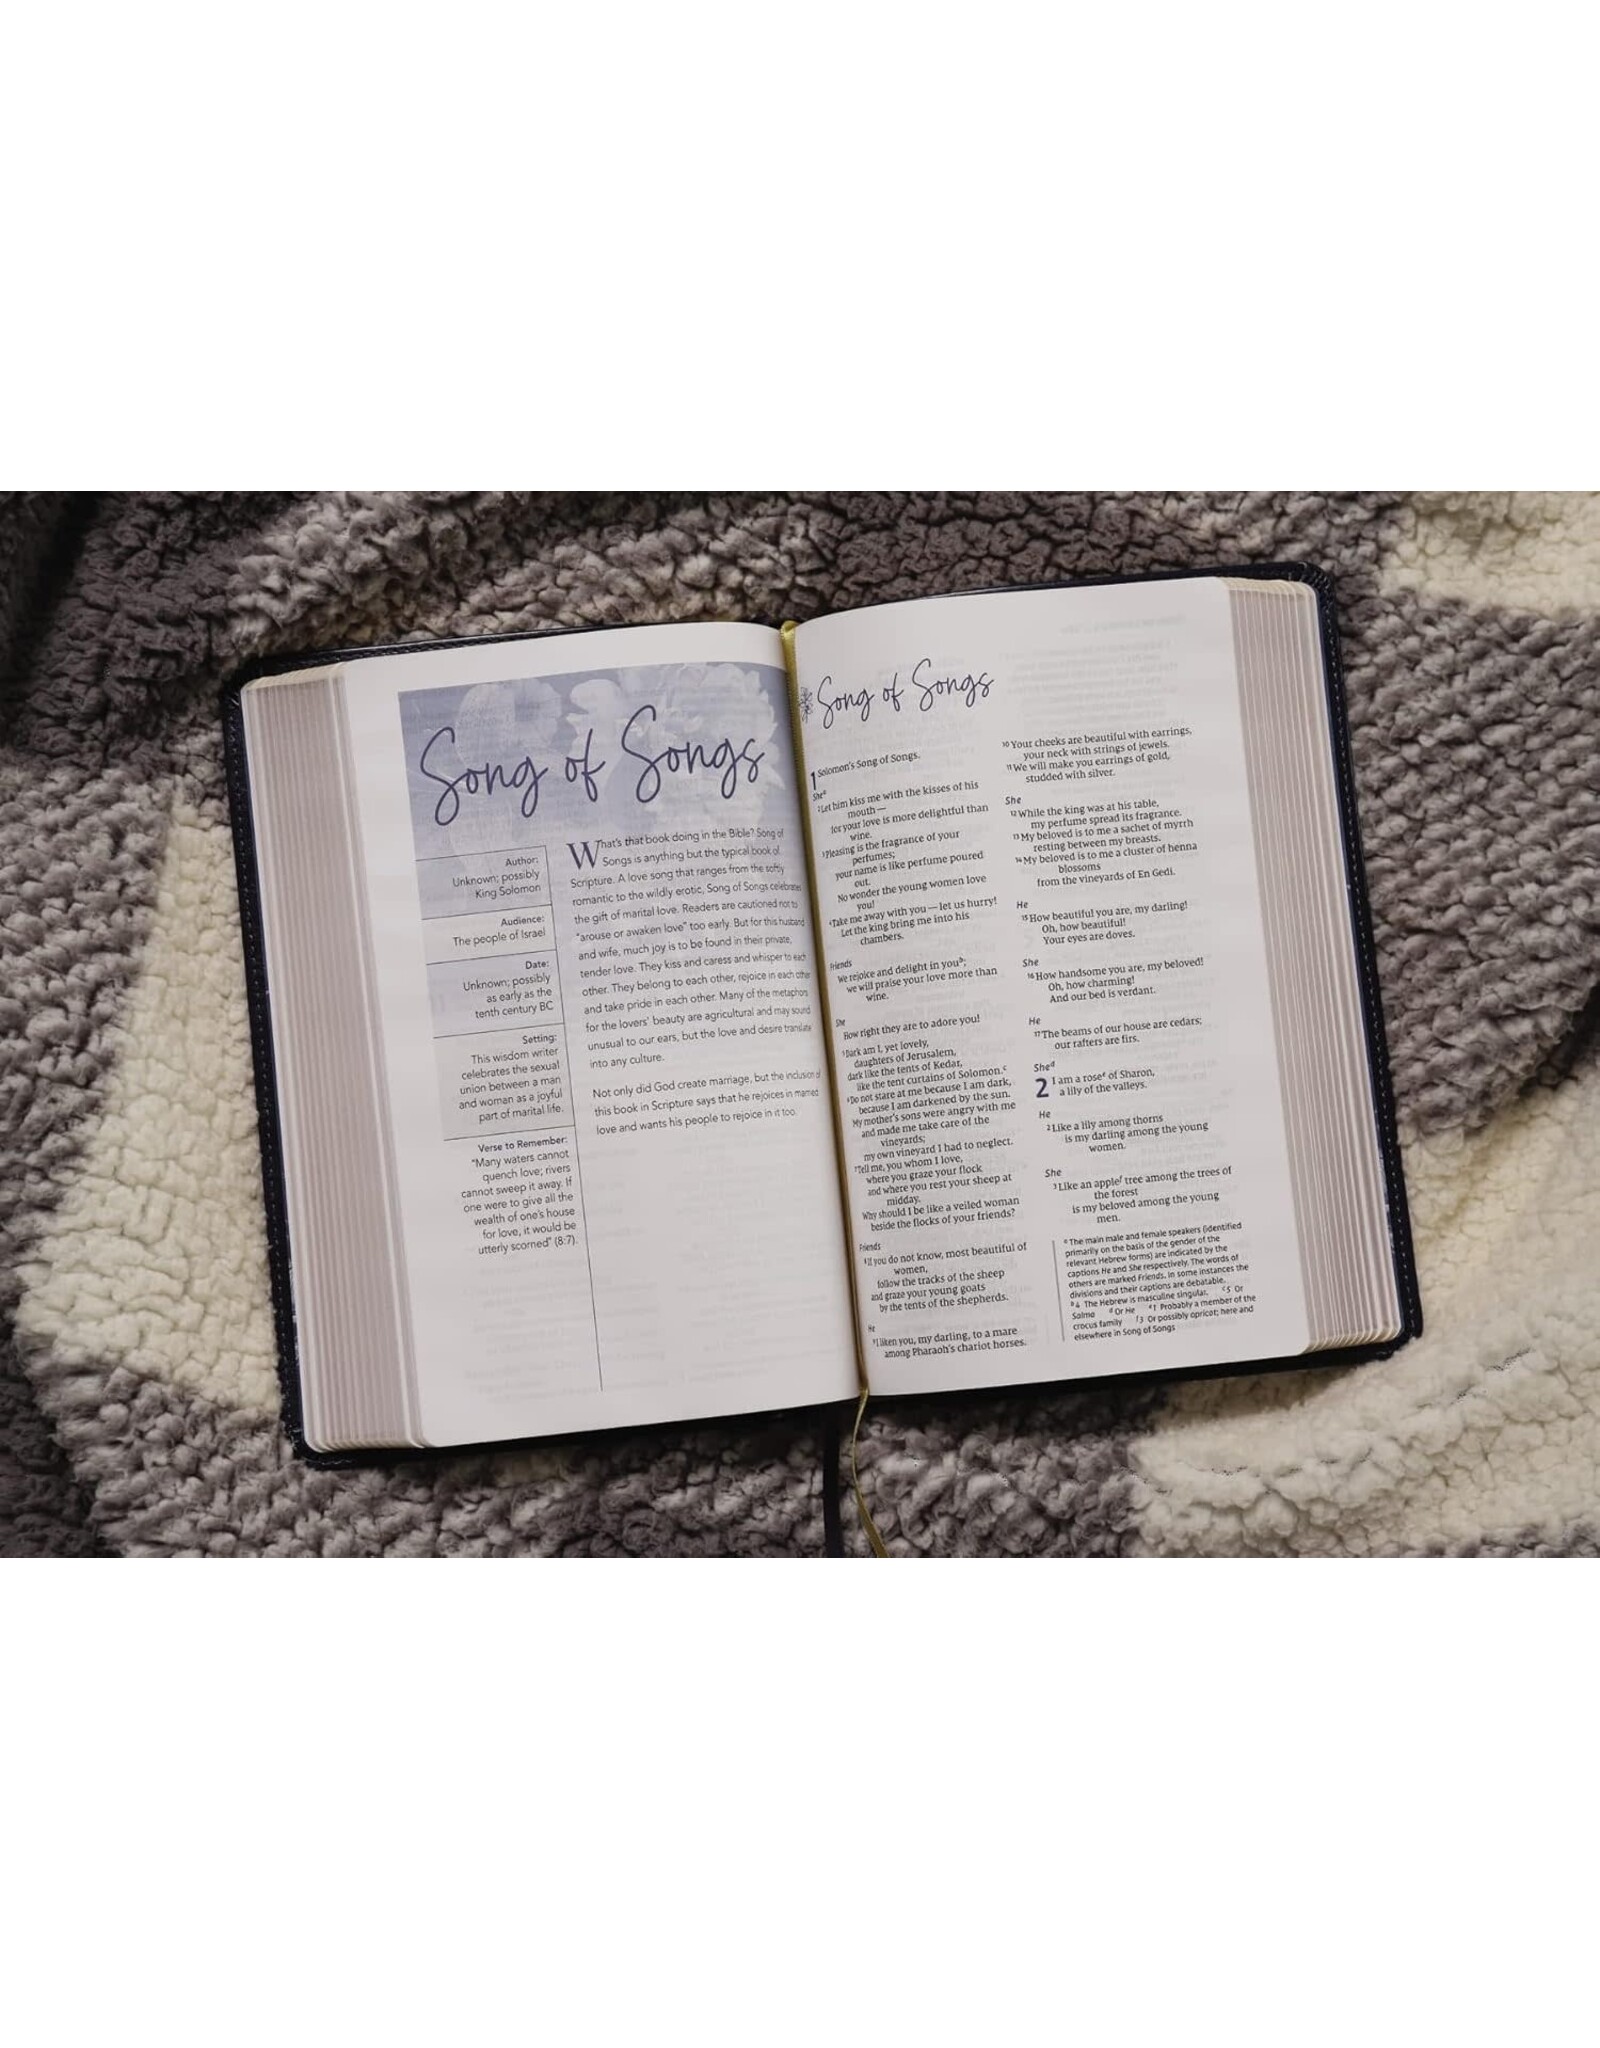 Song of Songs
Author:
Unknown; possibly
King Solomon
Audience:
The people of Israel
Date:
Unknown; possibly
as early as the
tenth century BC
Setting:
This wisdom writer
celebrates the sexual
union between a man
and woman as a joyful
part of marital life.
Verse to Remember:
"Many waters cannot
quench love; rivers
cannot sweep it away. If
one were to give all the
wealth of one's house
for love, it would be
utterly scorned" (8:7).
What's that book doing in the Bible? Song of
Songs is anything but the typical book of
Scripture. A love song that ranges from the softly
romantic to the wildly erotic, Song of Songs celebrates
the gift of marital love. Readers are cautioned not to
"arouse or awaken love" too early. But for this husband
and wife, much joy is to be found in their private,
tender love. They kiss and caress and whisper to each
other. They belong to each other, rejoice in each other
and take pride in each other. Many of the metaphors
for the lovers' beauty are agricultural and may sound
unusual to our ears, but the love and desire translate
into any culture.
Not only did God create marriage, but the inclusion of
this book in Scripture says that he rejoices in married
love and wants his people to rejoice in it too.
Song of Songs
1 Solomon's Song of Songs.
She a
2 Let him kiss me with the kisses of his
mouth—
for your love is more delightful than
wine.
3 Pleasing is the fragrance of your
perfumes;
your name is like perfume poured
out.
No wonder the young women love
you!
4 Take me away with you — let us hurry!
Let the king bring me into his
chambers.
Friends
We rejoice and delight in you b;
we will praise your love more than
wine.
She
How right they are to adore you!
5 Dark am I, yet lovely,
daughters of Jerusalem,
dark like the tents of Kedar,
like the tent curtains of Solomon. c
6 Do not stare at me because I am dark,
because I am darkened by the sun.
My mother's sons were angry with me
and made me take care of the
vineyards;
my own vineyard I had to neglect.
7 Tell me, you whom I love,
where you graze your flock
and where you rest your sheep at
midday.
Why should I be like a veiled woman
beside the flocks of your friends?
Friends
8 If you do not know, most beautiful of
women,
follow the tracks of the sheep
and graze your young goats
by the tents of the shepherds.
He
9 I liken you, my darling, to a mare
among Pharaoh's chariot horses.
10 Your cheeks are beautiful with earrings,
your neck with strings of jewels.
11 We will make you earrings of gold,
studded with silver.
She
12 While the king was at his table,
my perfume spread its fragrance.
13 My beloved is to me a sachet of myrrh
resting between my breasts.
14 My beloved is to me a cluster of henna
blossoms
from the vineyards of En Gedi.
He
15 How beautiful you are, my darling!
Oh, how beautiful!
Your eyes are doves.
She
16 How handsome you are, my beloved!
Oh, how charming!
And our bed is verdant.
He
17 The beams of our house are cedars;
our rafters are firs.
She d
2 I am a rose e of Sharon,
a lily of the valleys.
He
2 Like a lily among thorns
is my darling among the young
women.
She
3 Like an apple f tree among the trees of
the forest
is my beloved among the young
men.
a The main male and female speakers (identified
primarily on the basis of the gender of the
relevant Hebrew forms) are indicated by the
captions He and She respectively. The words of
others are marked Friends. In some instances the
divisions and their captions are debatable.
b 4 The Hebrew is masculine singular. c 5 Or
Salma d Or He e 1 Probably a member of the
crocus family f 3 Or possibly apricot; here and
elsewhere in Song of Songs